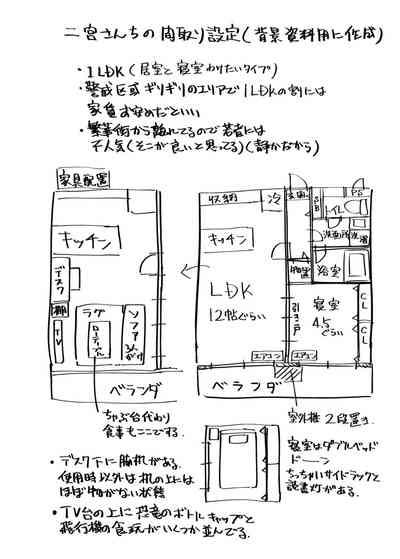 二宮さんちの間取り設定(背景資料用に作成)
・1LDK(居室と寝室わけたいタイプ)
・警戒区域ギリギリのエリアで1LDKの割には
家賃お安めだといい
・繁華街から離れてるので若者には
不人気(そこが良いと思ってる)(静かなから)
家具配置
キッチン
デスク
棚
TV
ラグ
ローテーブル
ソファ
ベランダ
ちゃぶ台代わり
食事もここでする。
収納
冷
玄関
PS
トイレ
洗面所
洗濯
キッチン
物置
浴室
LDK
12帖ぐらい
引き戸
寝室
4.5
ぐらい
CL
CL
エアコン
エアコン
ベランダ
室外機2段置き
寝室はダブルベッド
ドーーン
ちっちゃいサイドラックと
読書灯がある。
・デスク下に脇机がある。
使用時以外は机の上には
ほぼ物がない状態
・TV台の上に恐竜のボトルキャップと
飛行機の食玩がいくつか並んでる。